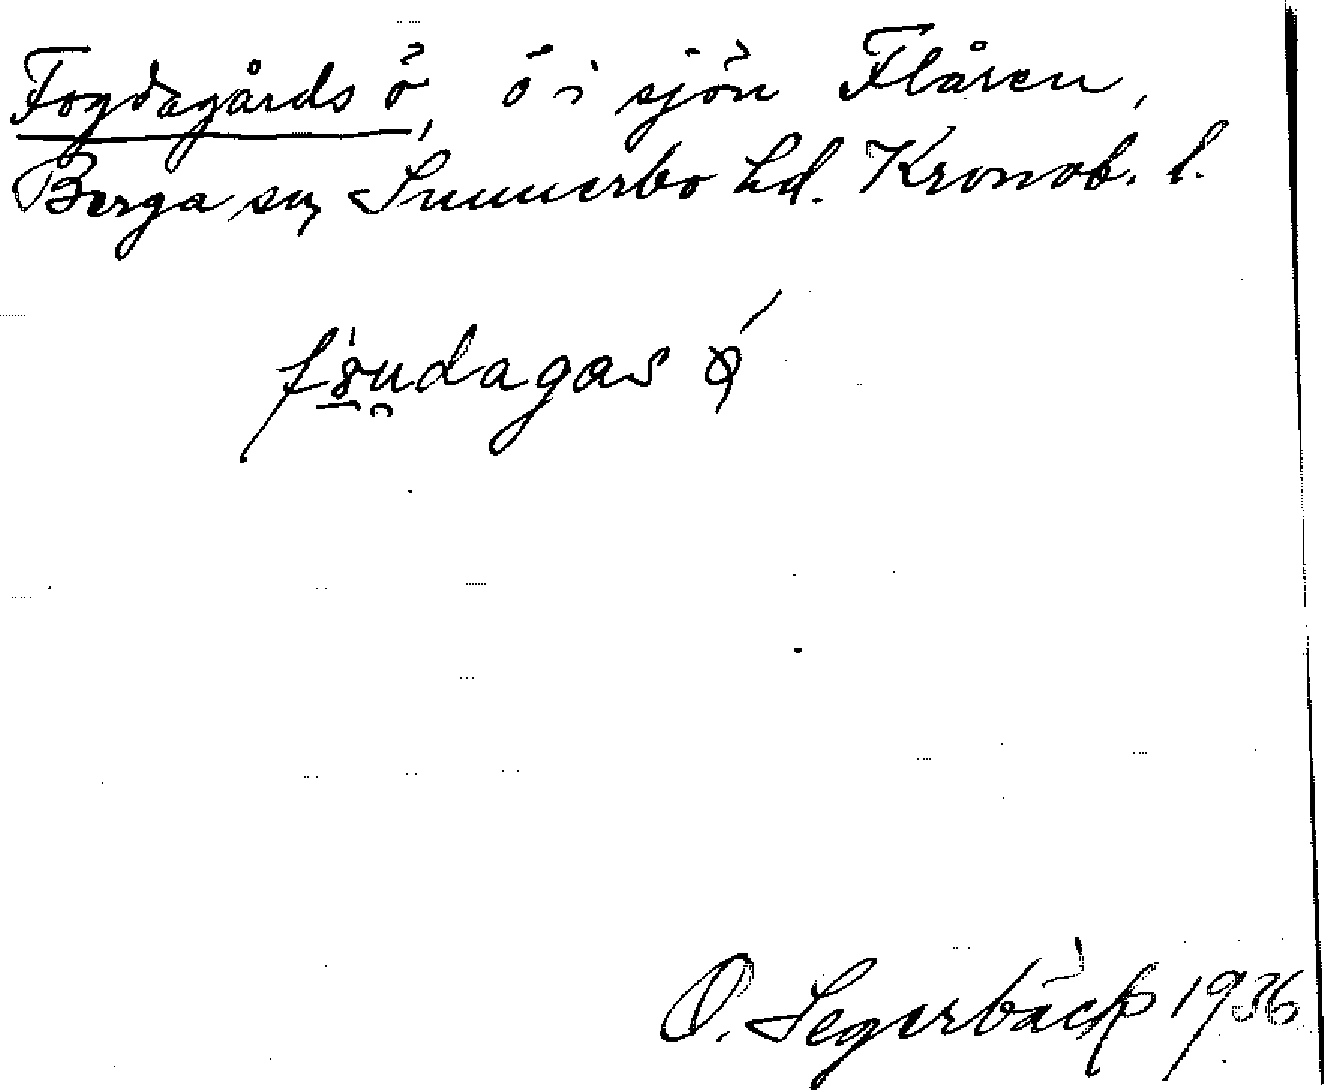 Fogdagårds ö, ö i sjön Flåren,
Berga sn, Sunnerbo hd. Kronob. l.
O. Segerbäck 1936